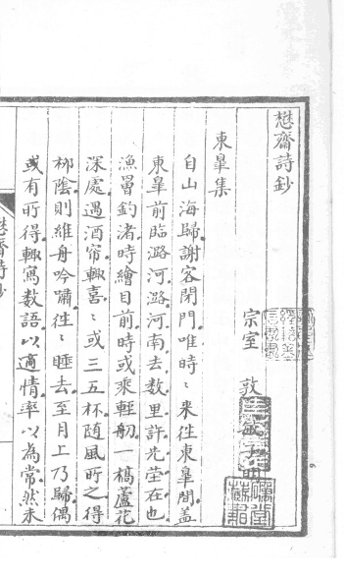 懋齋詩鈔
宗室 敦
東皐集
自山海歸謝客閉門唯時〻來徃東皐間蓋
東皐前臨潞河潞河南去数里許先塋在也
漁罾釣渚時繪目前時或乘輕舠一槁蘆花
深處遇酒帘輒喜〻或三五杯随風所之得
栁陰則維舟吟嘯徃〻睡去至月上乃歸偶
或有所得輒寫数語以適情率以為常然未
懋齋詩鈔